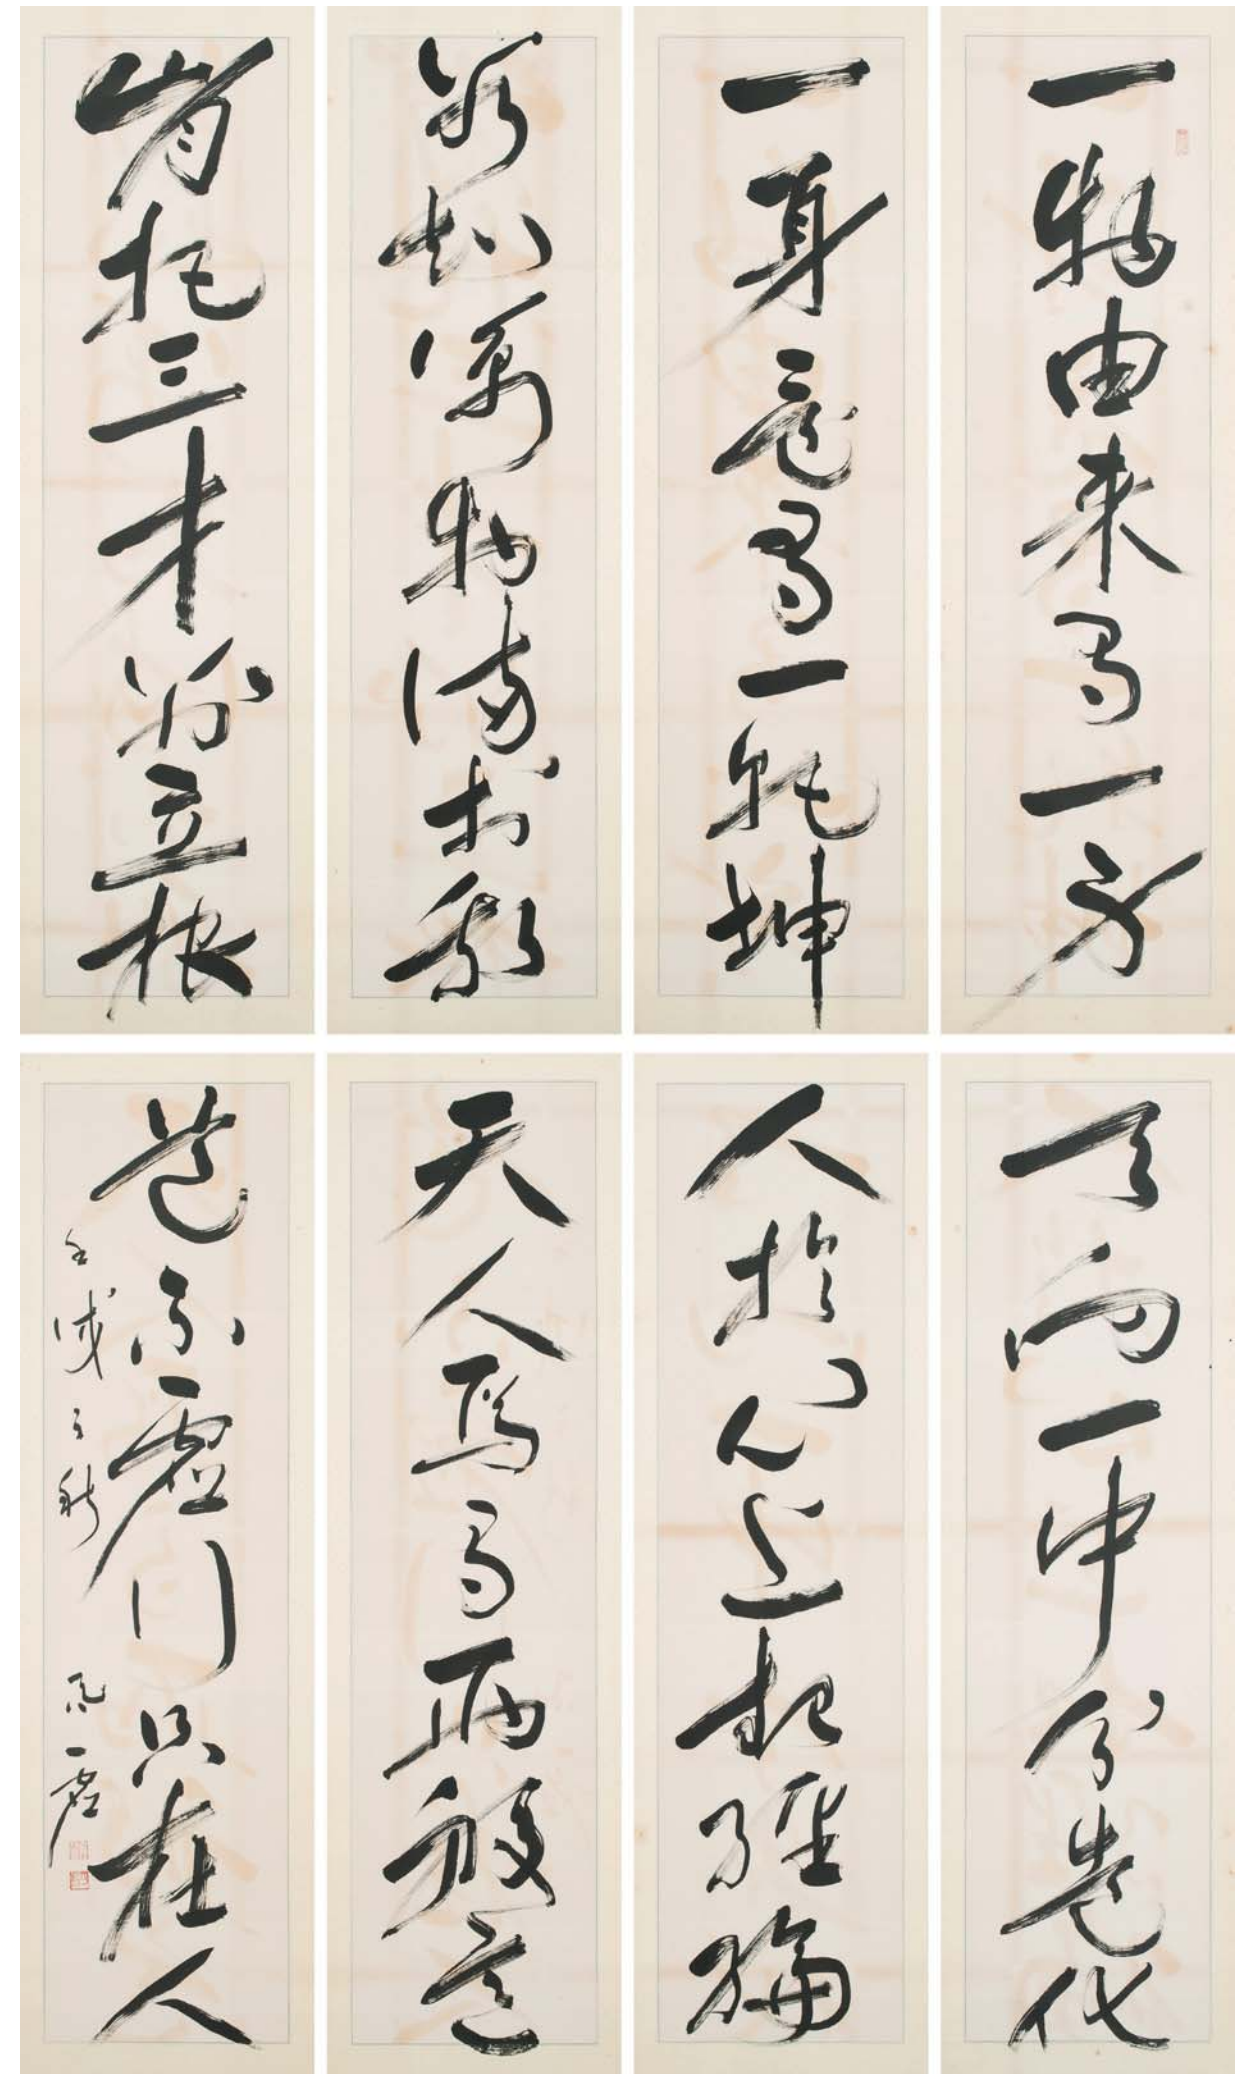 一物由來有一身
一身還有一乾坤
能知萬物備於我
肯把三才別立根
天向一中分造化
人於心上起經綸
天人焉有兩般意
道不虛行只在人
壬戌之秋 一虛